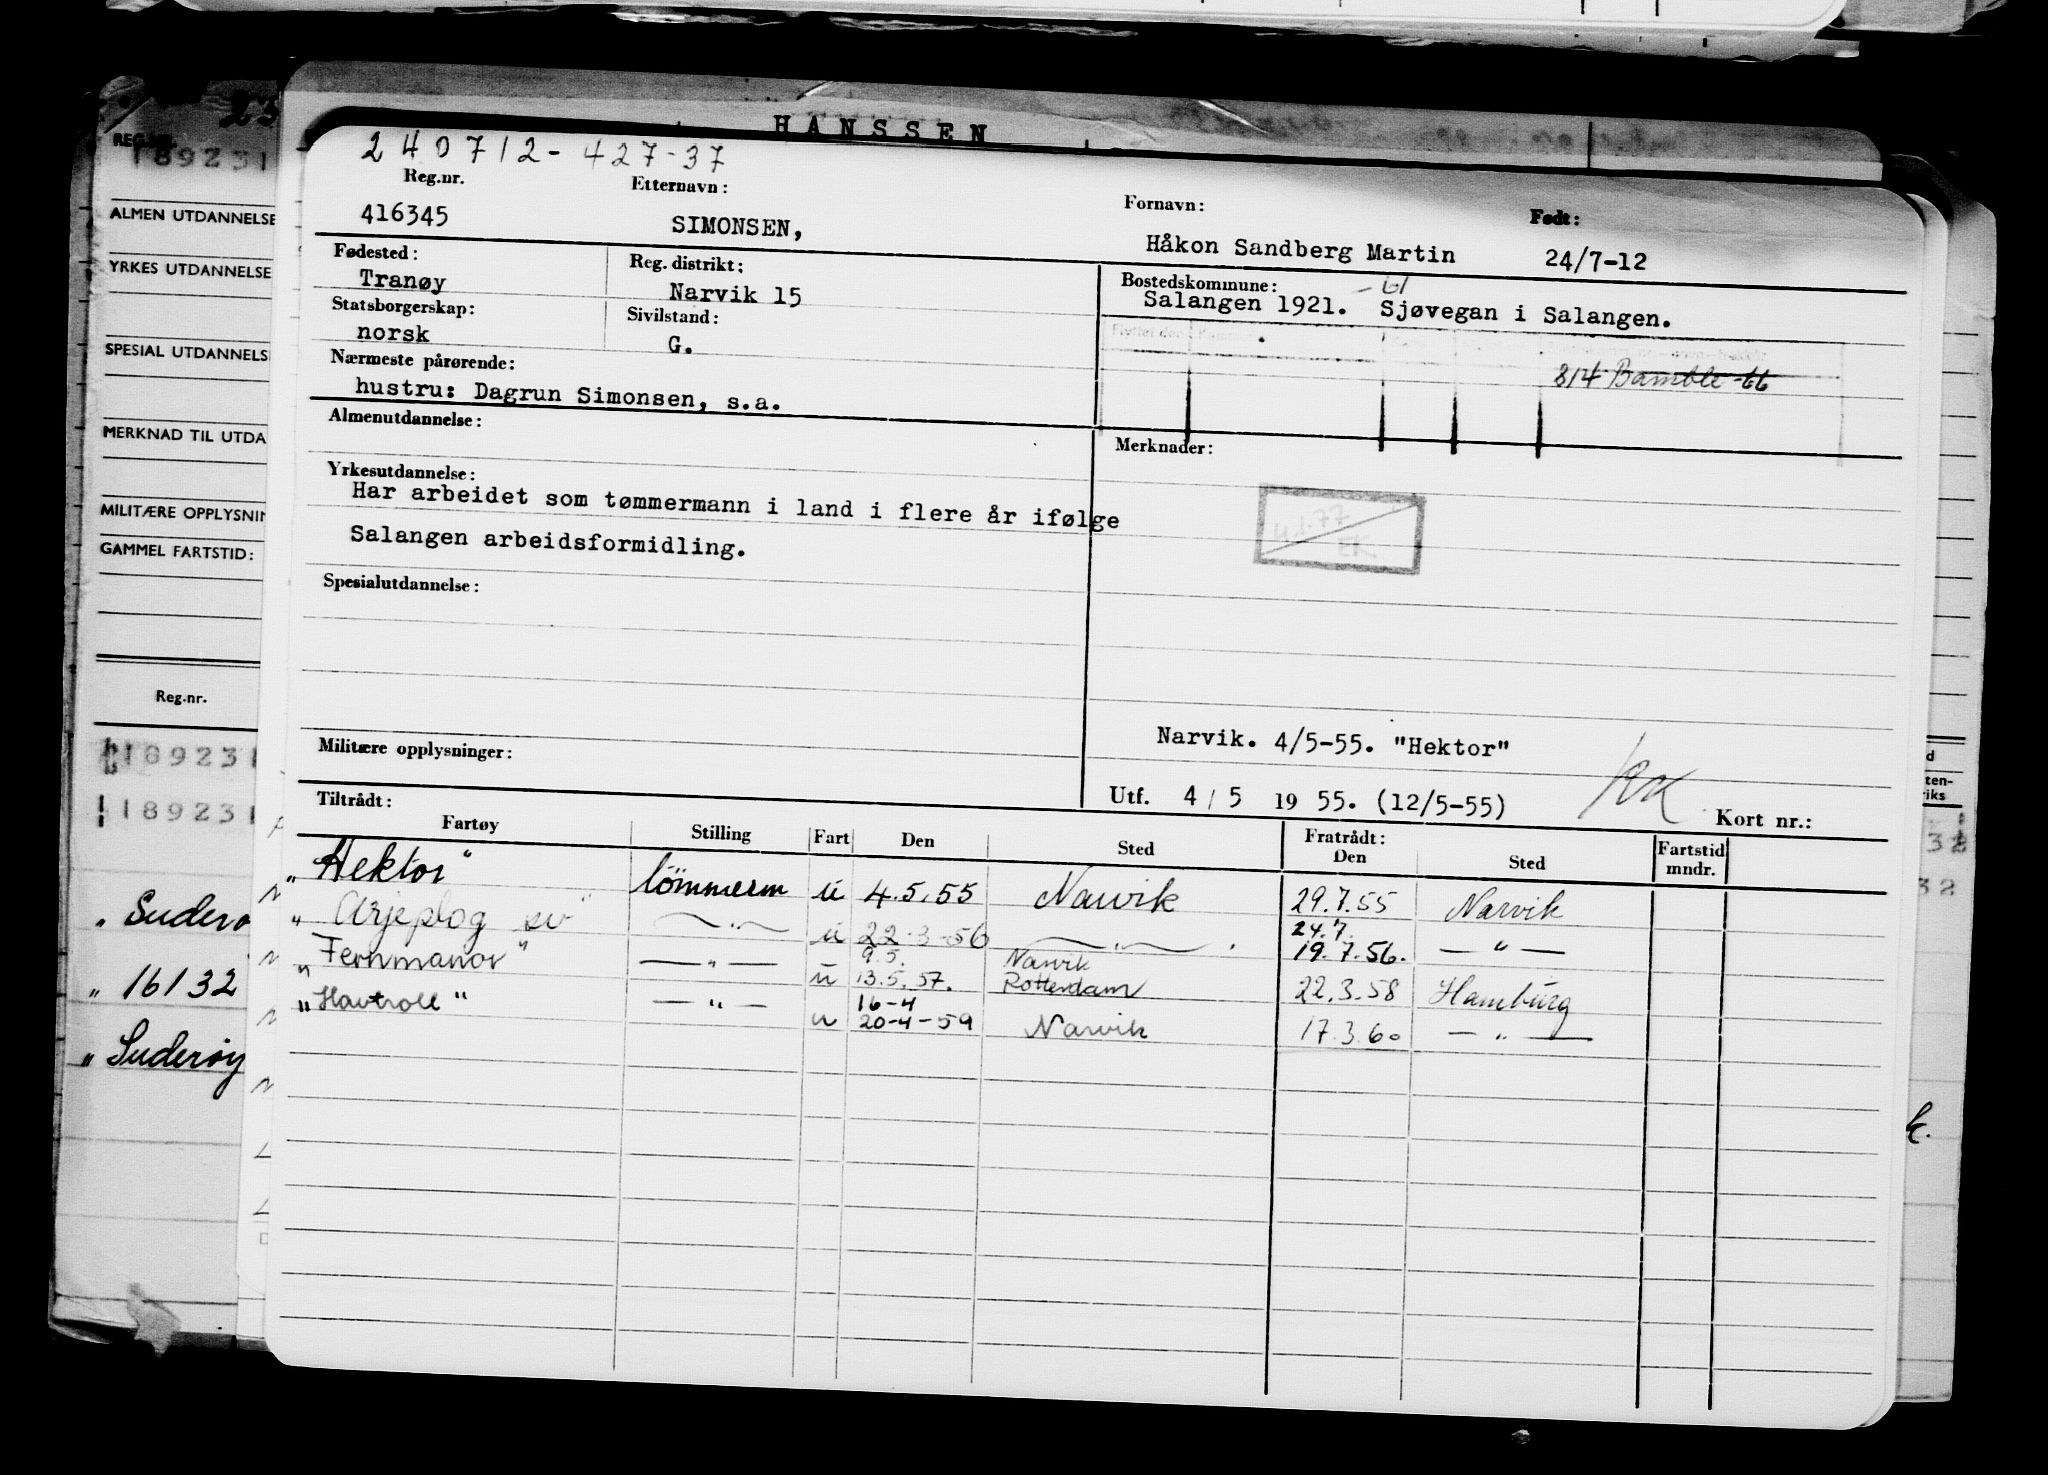 HANSSEN
240712-427-37
Reg.nr. Etternavn: Fornavn: Født:
416345 SIMONSEN, Håkon Sandberg Martin 24/7-12
Fødested: Reg. distrikt: Bostedskommune:
Tranøy Narvik 15 Salangen 1921. Sjøvegan i Salangen.
Statsborgerskap: Sivilstand:
norsk G.
Nærmeste pårørende: 814 Bamble -66
hustru: Dagrun Simonsen, s.a.
Almenutdannelse: Merknader:
Yrkesutdannelse:
Har arbeidet som tømmermann i land i flere år ifølge
Salangen arbeidsformidling.
4.1.77
EK
Spesialutdannelse:
Narvik. 4/5-55. "Hektor"
Militære opplysninger:
Utf. 4/5 1955. (12/5-55) Kort nr.:
Tiltrådt:
Fartøy Stilling Fart Den Sted Fratrådt: Den Sted Fartstid mndr.
"Hektor" tömmerm u 4.5.55 Narvik 29.7.55 Narvik
"Arjeplog sv" —"— u 22-3-56 —"— 24.7. 19.7.56. —"—
"Fernmanor" —"— u 9.5. 13.5.57. Narvik Rotterdam 22.3.58 Hamburg
"Havtroll" —"— u 16-4 20-4-59 Narvik 17.3.60 —"—
REG.NR.
189231
ALMEN UTDANNELSE
YRKES UTDANNELSE
SPESIAL UTDANNELS
MERKNAD TIL UTDA
MILITÆRE OPPLYSNIN
GAMMEL FARTSTID:
Reg.nr.
189231
189231
"Suderø
"16132
"Suderøy